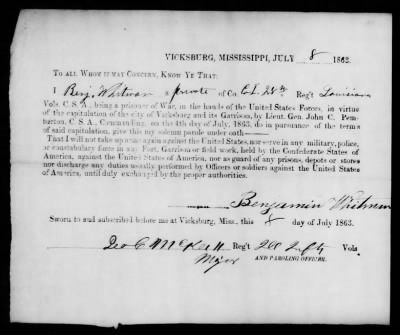 VICKSBURG, MISSISSIPPI, JULY 8 1863.
TO ALL WHOM IT MAY CONCERN, KNOW YE THAT:
I Benj. Whitman a private of Co. 28th Reg't Louisiana
Vols. C. S. A., being a prisoner of War, in the hands of the United States Forces, in virtue
of the capitulation of the city of Vicksburg and its Garrison, by Lieut. Gen. John C. Pem-
berton, C. S. A., Commanding, on the 4th day of July, 1863, do in pursuance of the terms
of said capitulation, give this my solemn parole under oath—
That I will not take up arms again against the United States, nor serve in any military, police,
or constabulary force in any Fort, Garrison or field work, held by the Confederate States of
America, against the United States of America, nor as guard of any prisons, depots or stores
nor discharge any duties usually performed by Officers or soldiers against the United States
of America, until duly exchanged by the proper authorities.
Benjamin Whitman
Sworn to and subscribed before me at Vicksburg, Miss., this 8 day of July 1863.
Geo C McKee Reg't Vols
Major AND PAROLING OFFICER.